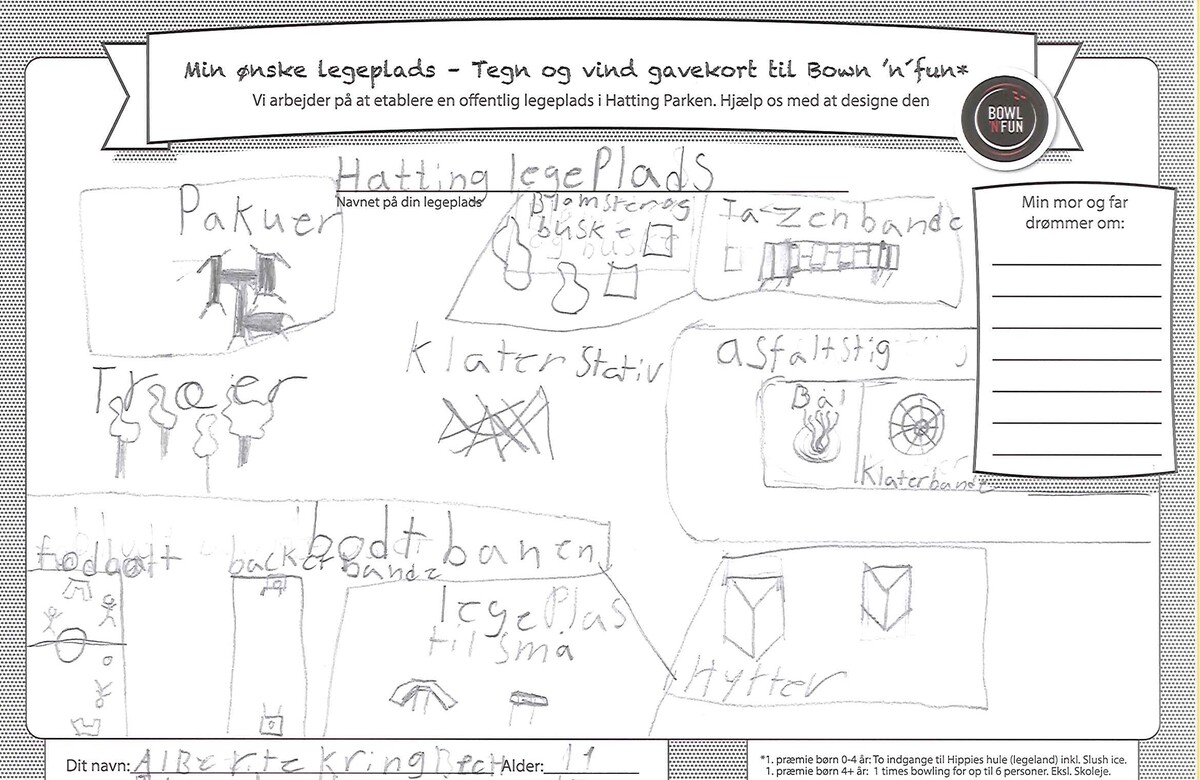 Min ønske legeplads - Tegn og vind gavekort til Bown 'n´fun*
Vi arbejder på at etablere en offentlig legeplads i Hatting Parken. Hjælp os med at designe den
BOWL
'N'FUN
Hatting legePlads
Navnet på din legeplads
Pakuer
Blomster og
buske
Tazzenbande
Min mor og far
drømmer om:
Klater Stativ
asfaltstig
Træer
Bål
Klaterbane
bodtbanen
fodbolt
backetbande
legePlas
til små
Hytter
Dit navn: AlBerte Kring Bech Alder: 11
*1. præmie børn 0-4 år: To indgange til Hippies hule (legeland) inkl. Slush ice.
1. præmie børn 4+ år: 1 times bowling for op til 6 personer. Eksl. Skoleje.